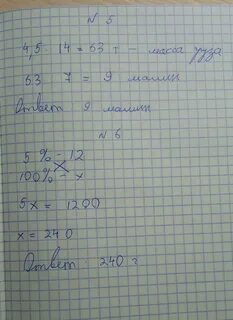 N 5
4,5 14 = 63 т - масса груза
63 7 = 9 машин
Ответ 9 машин
N 6
5 % - 12
100% - x
5x = 1200
x = 240
Ответ : 240 г